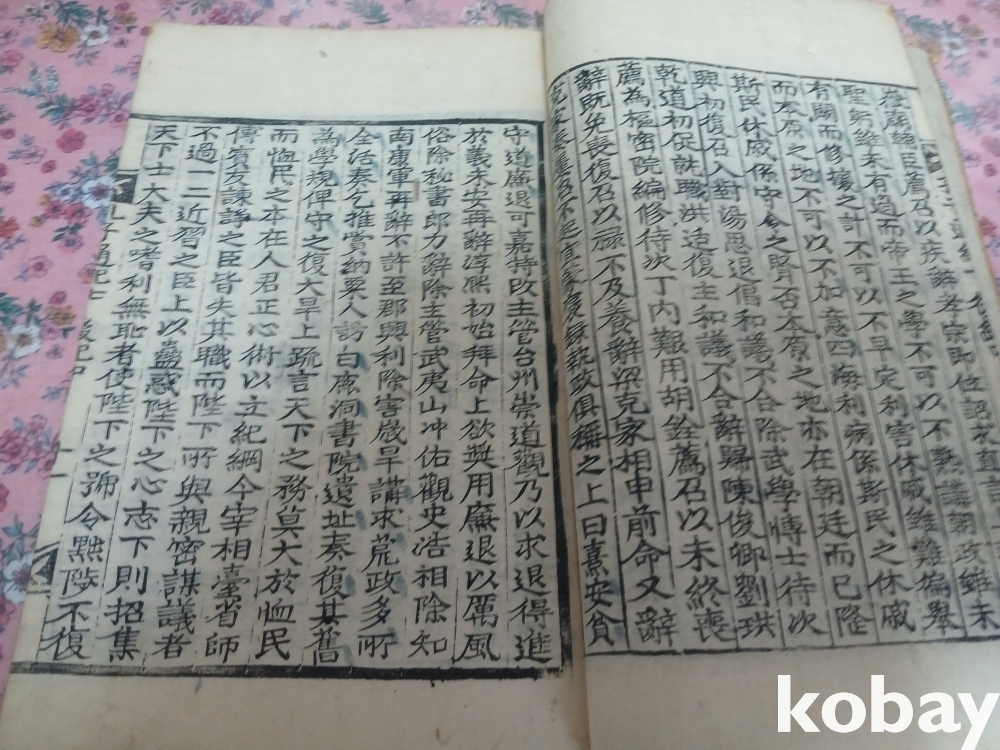 輔臣薦召以疾辭孝宗即位詔求直言
聖躬雖未有過而帝王之學不可以不熟講朝政雖未
有闕而修攘之計不可以不早定利害休戚雖難徧擧
而本原之地不可以不加意四海利病係斯民之休戚
斯民休戚係守令之賢否本原之地亦在朝廷而已隆
興初復召入對湯思退倡和議不合除武學博士待次
乾道初促就職洪适復主和議不合辭歸陳俊卿劉珙
薦為樞密院編修待次丁內艱用胡銓薦召以未終喪
辭旣免喪復召以祿不及養辭梁克家相申前命又辭
執政俱稱之上曰熹安貧
守道廉退可嘉特改主管台州崇道觀乃以求退得進
於義未安再辭淳熙初始拜命上欲奬用廉退以厲風
俗除秘書郎力辭除主管武夷山冲佑觀史浩相除知
南康軍再辭不許至郡興利除害歲旱講求荒政多所
全活奏乞推賞納粟人訪白鹿洞書院遺址奏復其舊
為學規俾守之復大旱上疏言天下之務莫大於恤民
而恤民之本在人君正心術以立紀綱今宰相臺省師
傅賓友諫諍之臣皆失其職而陛下所與親密謀議者
不過一二近習之臣上以蠱惑陛下之心志下則招集
天下士大夫之嗜利無恥者使陛下之號令黜陟不復